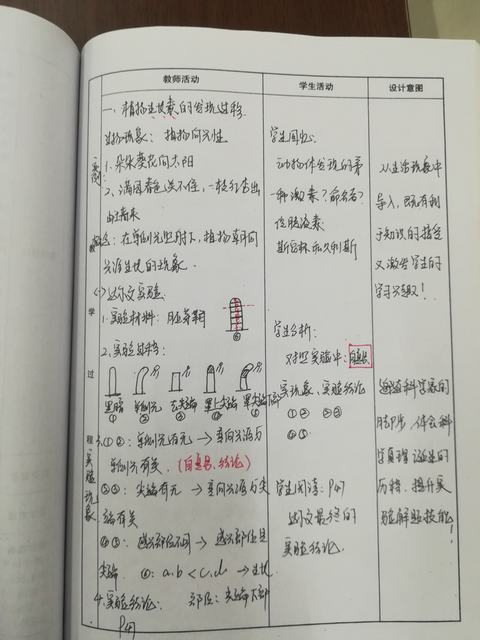 教师活动
一、植物生长素的发现过程
生物现象：植物向光性
实例：
1、朵朵葵花向太阳
2、满园春色关不住，一枝红杏出
由墙来
概念：在单侧光照射下，植物朝向
光源生长的现象．
(一) 达尔文实验
1.实验材料：胚芽鞘
⑥
2、实验思考：
黑暗 单侧光 去尖端 罩上尖端 罩尖端下部
① ② ③ ④ ⑤
3、实验现象
①②：单侧光有无→弯向光源与
单侧光有关．(自变量、结论)
②③：尖端有无→弯向光源与尖
端有关
④⑤：感光部位不同→感光部位是
尖端. ⑥：a.b < c.d →生长
4.实验结论： 部位：尖端下部
P47
教
学
过
程
学生活动
学生回忆：
动物体发现的第
一种激素？命名者？
促胰液素
斯他林和贝利斯
学生分析：
对照实验中：自变量
实验现象、实验结论
①② ②③
④⑤
学生阅读：P47
达尔文最终的
实验结论．
设计意图
从生活现象中
导入，既有利
于知识的接受
又激发学生的
学习兴趣！
追随科学家的
脚步，体会科
学真理诞生的
历程，提升实
验解题技能！